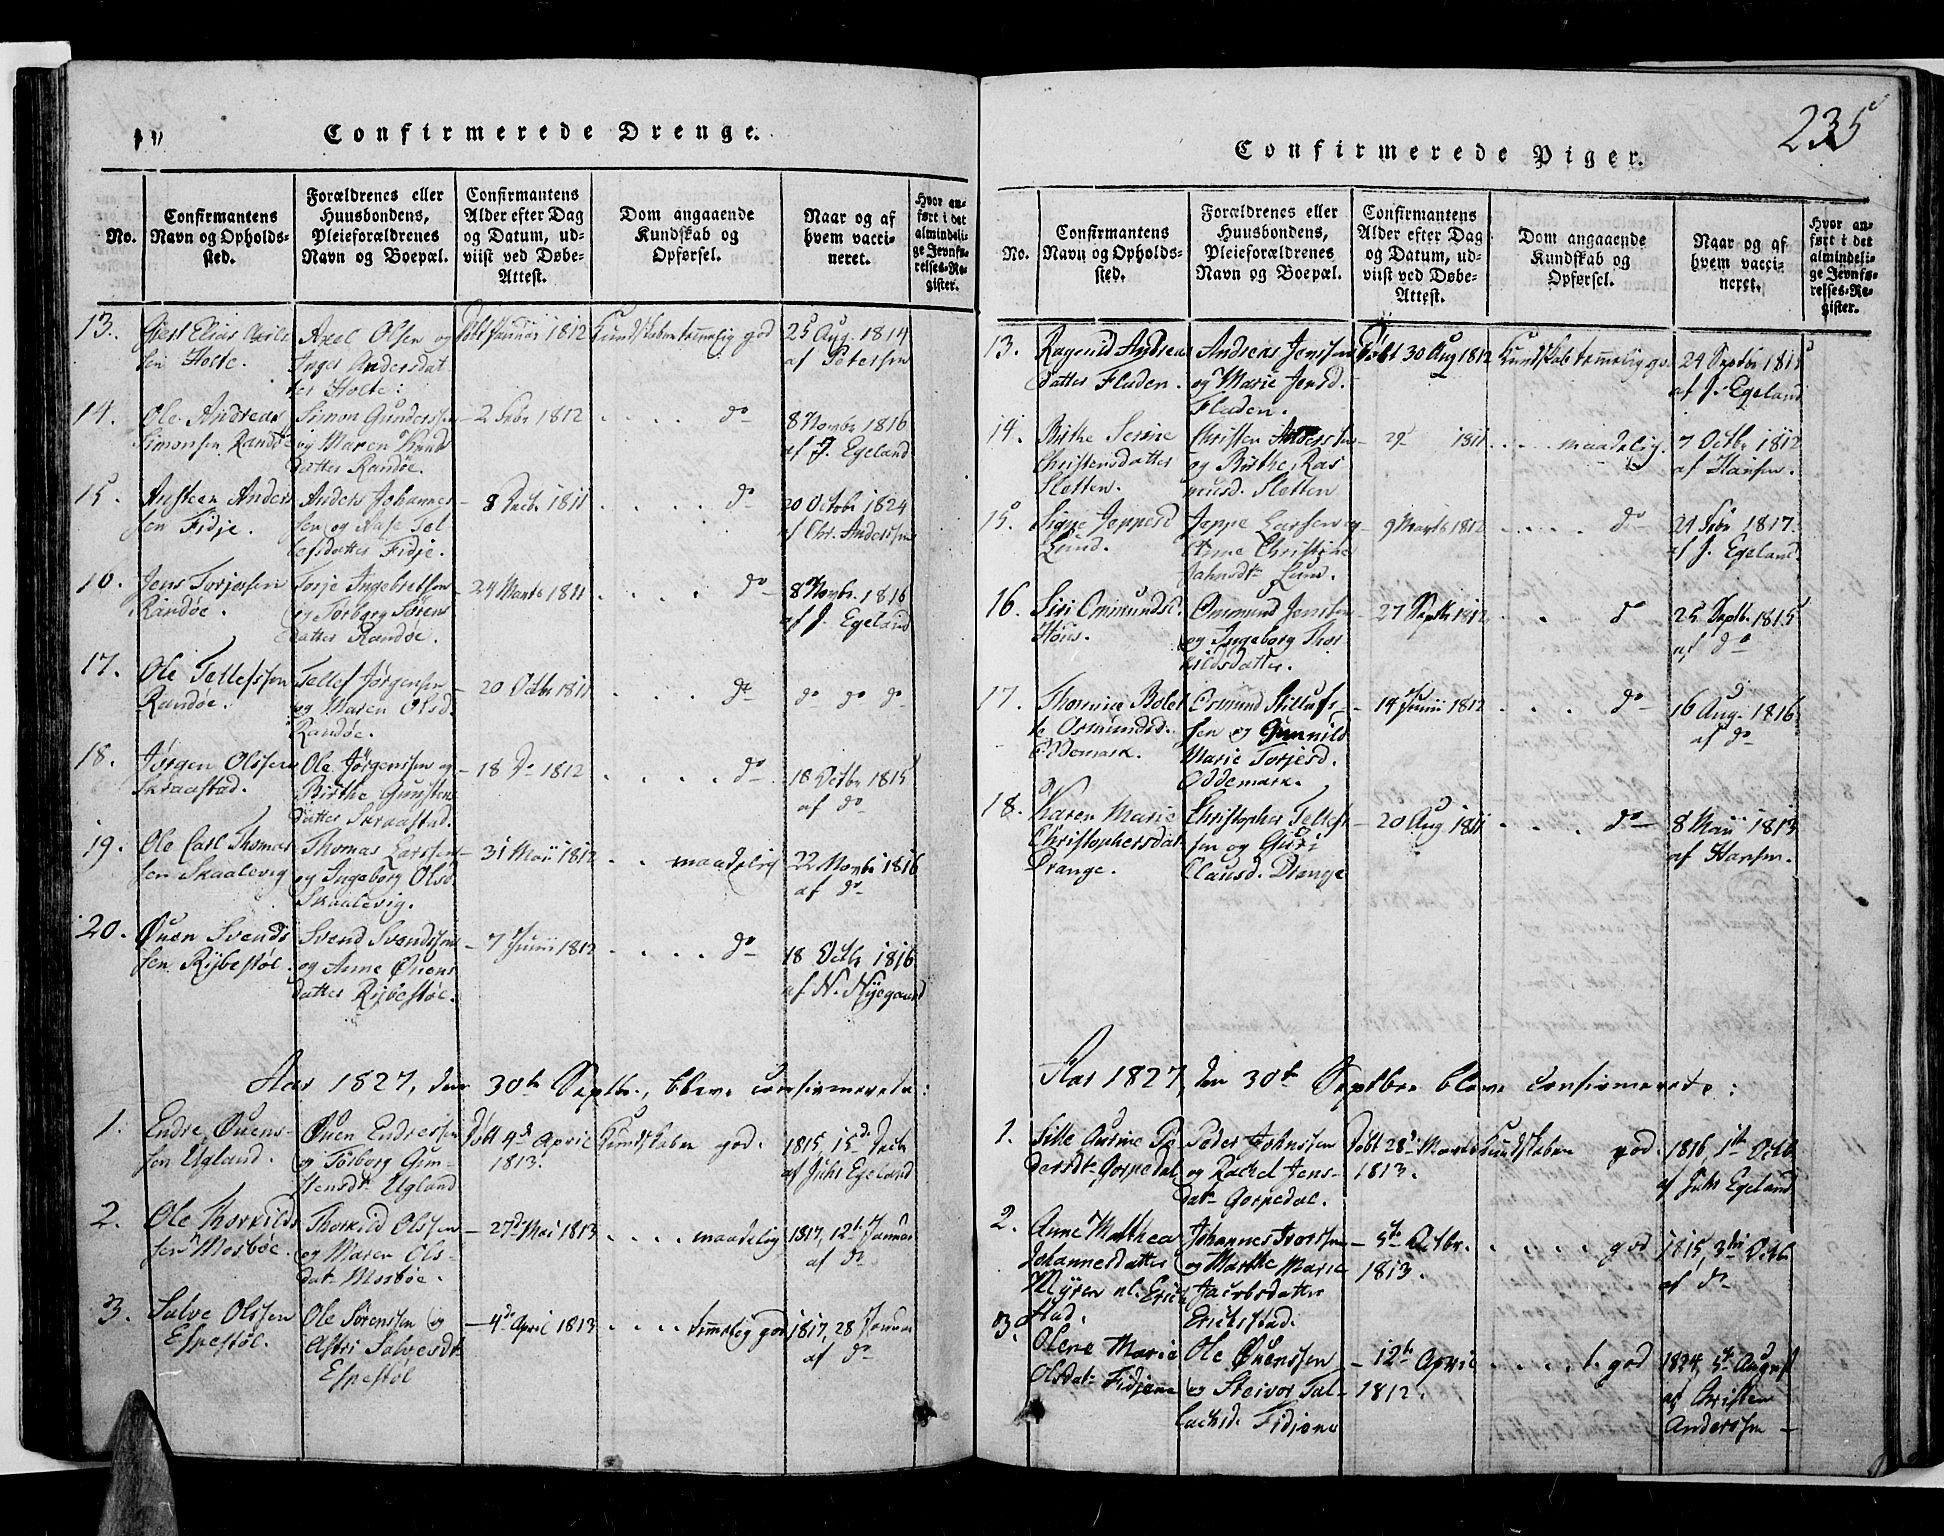 Confirmerede Drenge.
No.
Confirmantens
Navn og Opholds-
sted.
Forældrenes eller
Huusbondens,
Pleieforældrenes
Navn og Boepæl.
Confirmantens
Alder efter Dag
og Datum, ud-
viist ved Døbe-
Attest.
Dom angaaende
Kundskab og
Opførsel.
Naar og af
hvem vacci-
neret.
Hvor an-
ført i det
almindeli-
ge Jevnfø-
relses-Re-
gister.
13.
Elias
sen Holte.
Axel Olsen og
Inger Andersdat
ter Holte.
Døbt Januar 1812
Kundskaben temmelig god
25 Aug. 1814
af Petersen
14.
Ole Andreas
Simonsen Randøe
Simon Gunderssen
og Maren Knud
datter Randøe.
2 1812
do
8 Novbr 1816
af J. Egeland
15.
Ansteen Anders
sen Fidje.
Anders Johannes
sen og Aase Tel
lefsdatter Fidje.
8 Decbr 1811
do
20 Octobr 1824
af Chr. Anderssen
16.
Jens Torjessen
Randøe.
Torje Ingebretsen
og Torborg Sørens
datter Randøe.
24 Marts 1811
do
8 Novbr. 1816
af J. Egeland
17.
Ole Tellefssen
Randøe.
Tellef Jørgensen
og Maren Olsd.
Randøe.
20 Octbr 1811
do
do do do
18.
Jørgen Olssen
Skraastad.
Ole Jørgenssen og
Birthe Gunsten
datter Skraastad.
18 do 1812
do
18 Octbr 1815
af do
19.
Ole Carl Thomas
sen Skaalevig
Thomas Larssen
og Ingeborg Olsd.
Skaalevig.
31 Maii 1812
maadelig
22 Novbr 1816
af do
20.
Øuen Svends
sen Ribestøl
Svend Svendssen
og Anne Øuens
datter Ribestøl.
7 Junii 1812
do
18 Octb. 1816
af N. Nyegaard
Aar 1827, den 30te Septbr., bleve confirmerede:
1.
Endre Øuens-
sen Ugland.
Øuen Endressen
og Torborg Gun-
stensdtr Ugland
Døbt 4de April
1813.
Kundskaben god.
1815, 15de Decbr
af Johs Egeland
2.
Ole Thorkilds
sen Mosbøe.
Thorkild Olssen
og Maren Ols-
dat. Mosbøe.
27de Mai 1813
maadelig
1817, 12te Januar
af do
3.
Salve Olssen
Espestøl.
Ole Sørenssen og
Astri Salvesdt.
Espestøl
4de April 1813
temmelig god
1817, 28 Januar
af do
235
Confirmerede Piger.
No.
Confirmantens
Navn og Opholds-
sted.
Forældrenes eller
Huusbondens,
Pleieforældrenes
Navn og Boepæl.
Confirmantens
Alder efter Dag
og Datum, ud-
viist ved Døbe-
Attest.
Dom angaaende
Kundskab og
Opførsel.
Naar og af
hvem vacci-
neret.
Hvor an-
ført i det
almindeli-
ge Jevnfø-
relses-Re-
gister.
13.
Ragnild Andreas
datter Fluden.
Andreas Jenssen
og Marie Jensd.
Fluden.
Døbt 30 Aug 1812
Kundskab temmelig god
24 Septbr
af J. Egeland
14.
Birthe Serine
Christensdatter
Sletten.
Christen Anderssen
og Birthe Ras
musd. Sletten
29 1811
maadelig.
7 Octbr 1812
af Hansen.
15.
Signe Jeppesd
Lund.
Jeppe Larsen og
Anne Christine
Jahnsdtr Lund.
9 Marts 1812
do
24 1817.
af J. Egeland.
16.
Siri Omundsd.
Høus.
Ommund Jenssen
og Ingeborg Thor
kildsdatter.
27 Septbr 1812
do
25 Septb. 1815
af do
17.
Thomine Bolet
te Osmundsd.
Oddemark.
Osmund
sen og Gunnild
Marie Torjesd.
Oddemark.
14 Junii 1812
do
16 Aug. 1816
af do
18.
Karen Marie
Christophersdat
Drange.
Christopher Tellef
sen og Guri
Clausd. Drange
20 Aug 1811
do
8 Maii 1813
af Hansen.
Aar 1827, den 30te Septbr bleve confirmerede:
1.
Sille Aurine Pe
dersdt. Gorpedal
Peder Johnssen
og Rachel Jens-
dat. Gorpedal.
Døbt 28de Marts
1813.
Kundskaben god.
1816, 1te Octb
af Johs Egeland
2.
Anne Mathea
Johannesdatter
Myren nl. Erick
stad.
Johannes Ivorssen
og Marthe Marie
Jacobsdatter
Erickstad.
5te Octbr.
1813.
god
1815, 3die Octb
af do
3.
Olene Marie
Olsdat. Fidjene
Ole Øuenssen
og Steivor Tal-
lacksd. Fidjene
12te April
1812.
t. god
1824, 5te August
af Christen
Anderssen